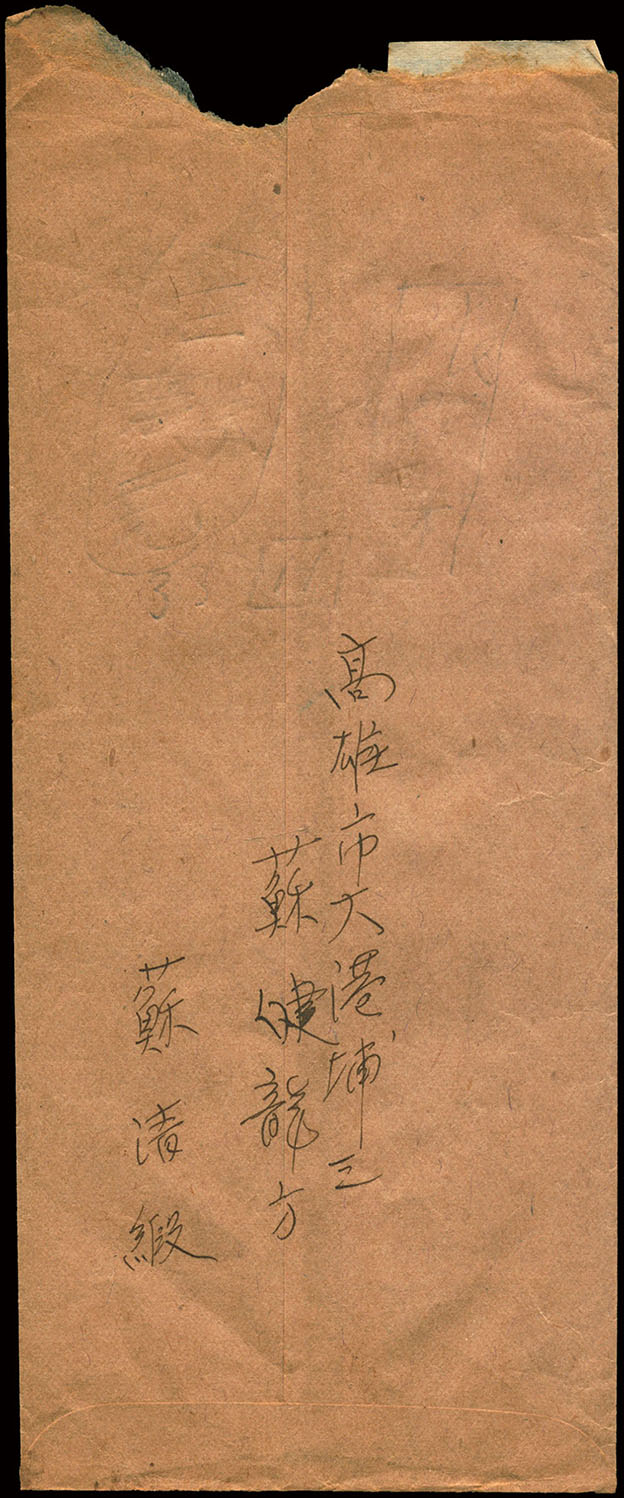 高雄市大港埔三
蘇健龍方
蘇清緞